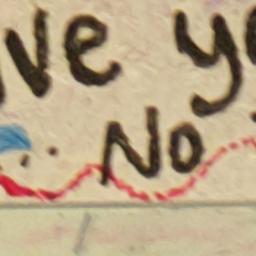 ve y
No